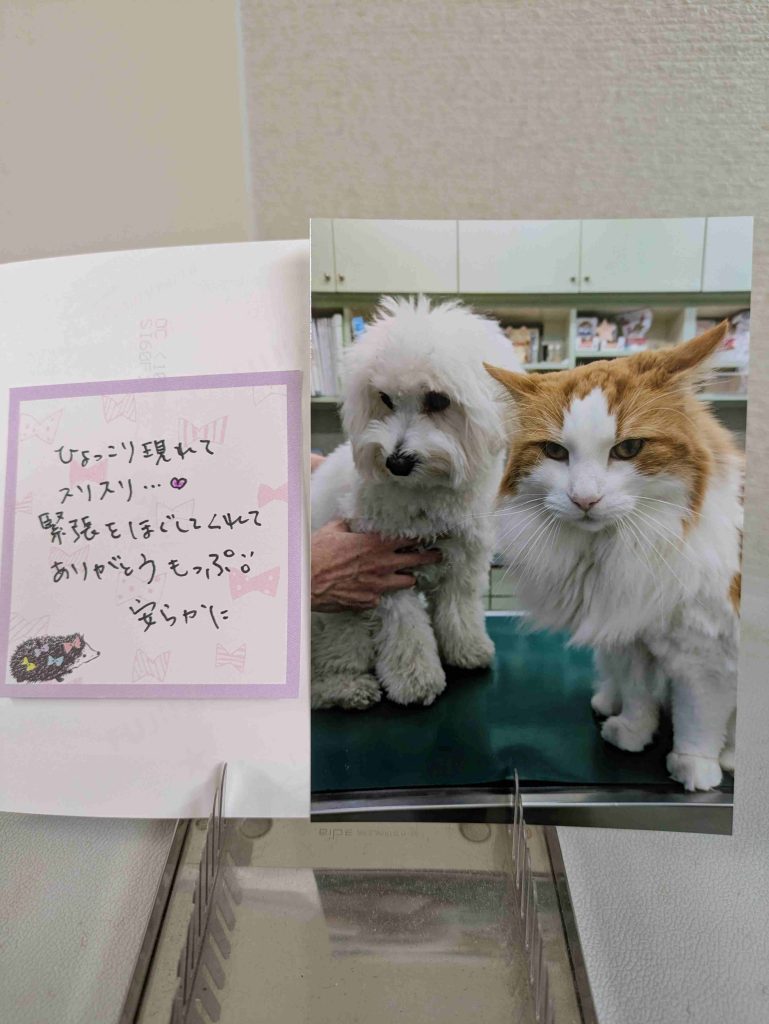 ひょっこり現れて
スリスリ…
緊張をほぐしてくれて
ありがとうもっぷ
安らかに